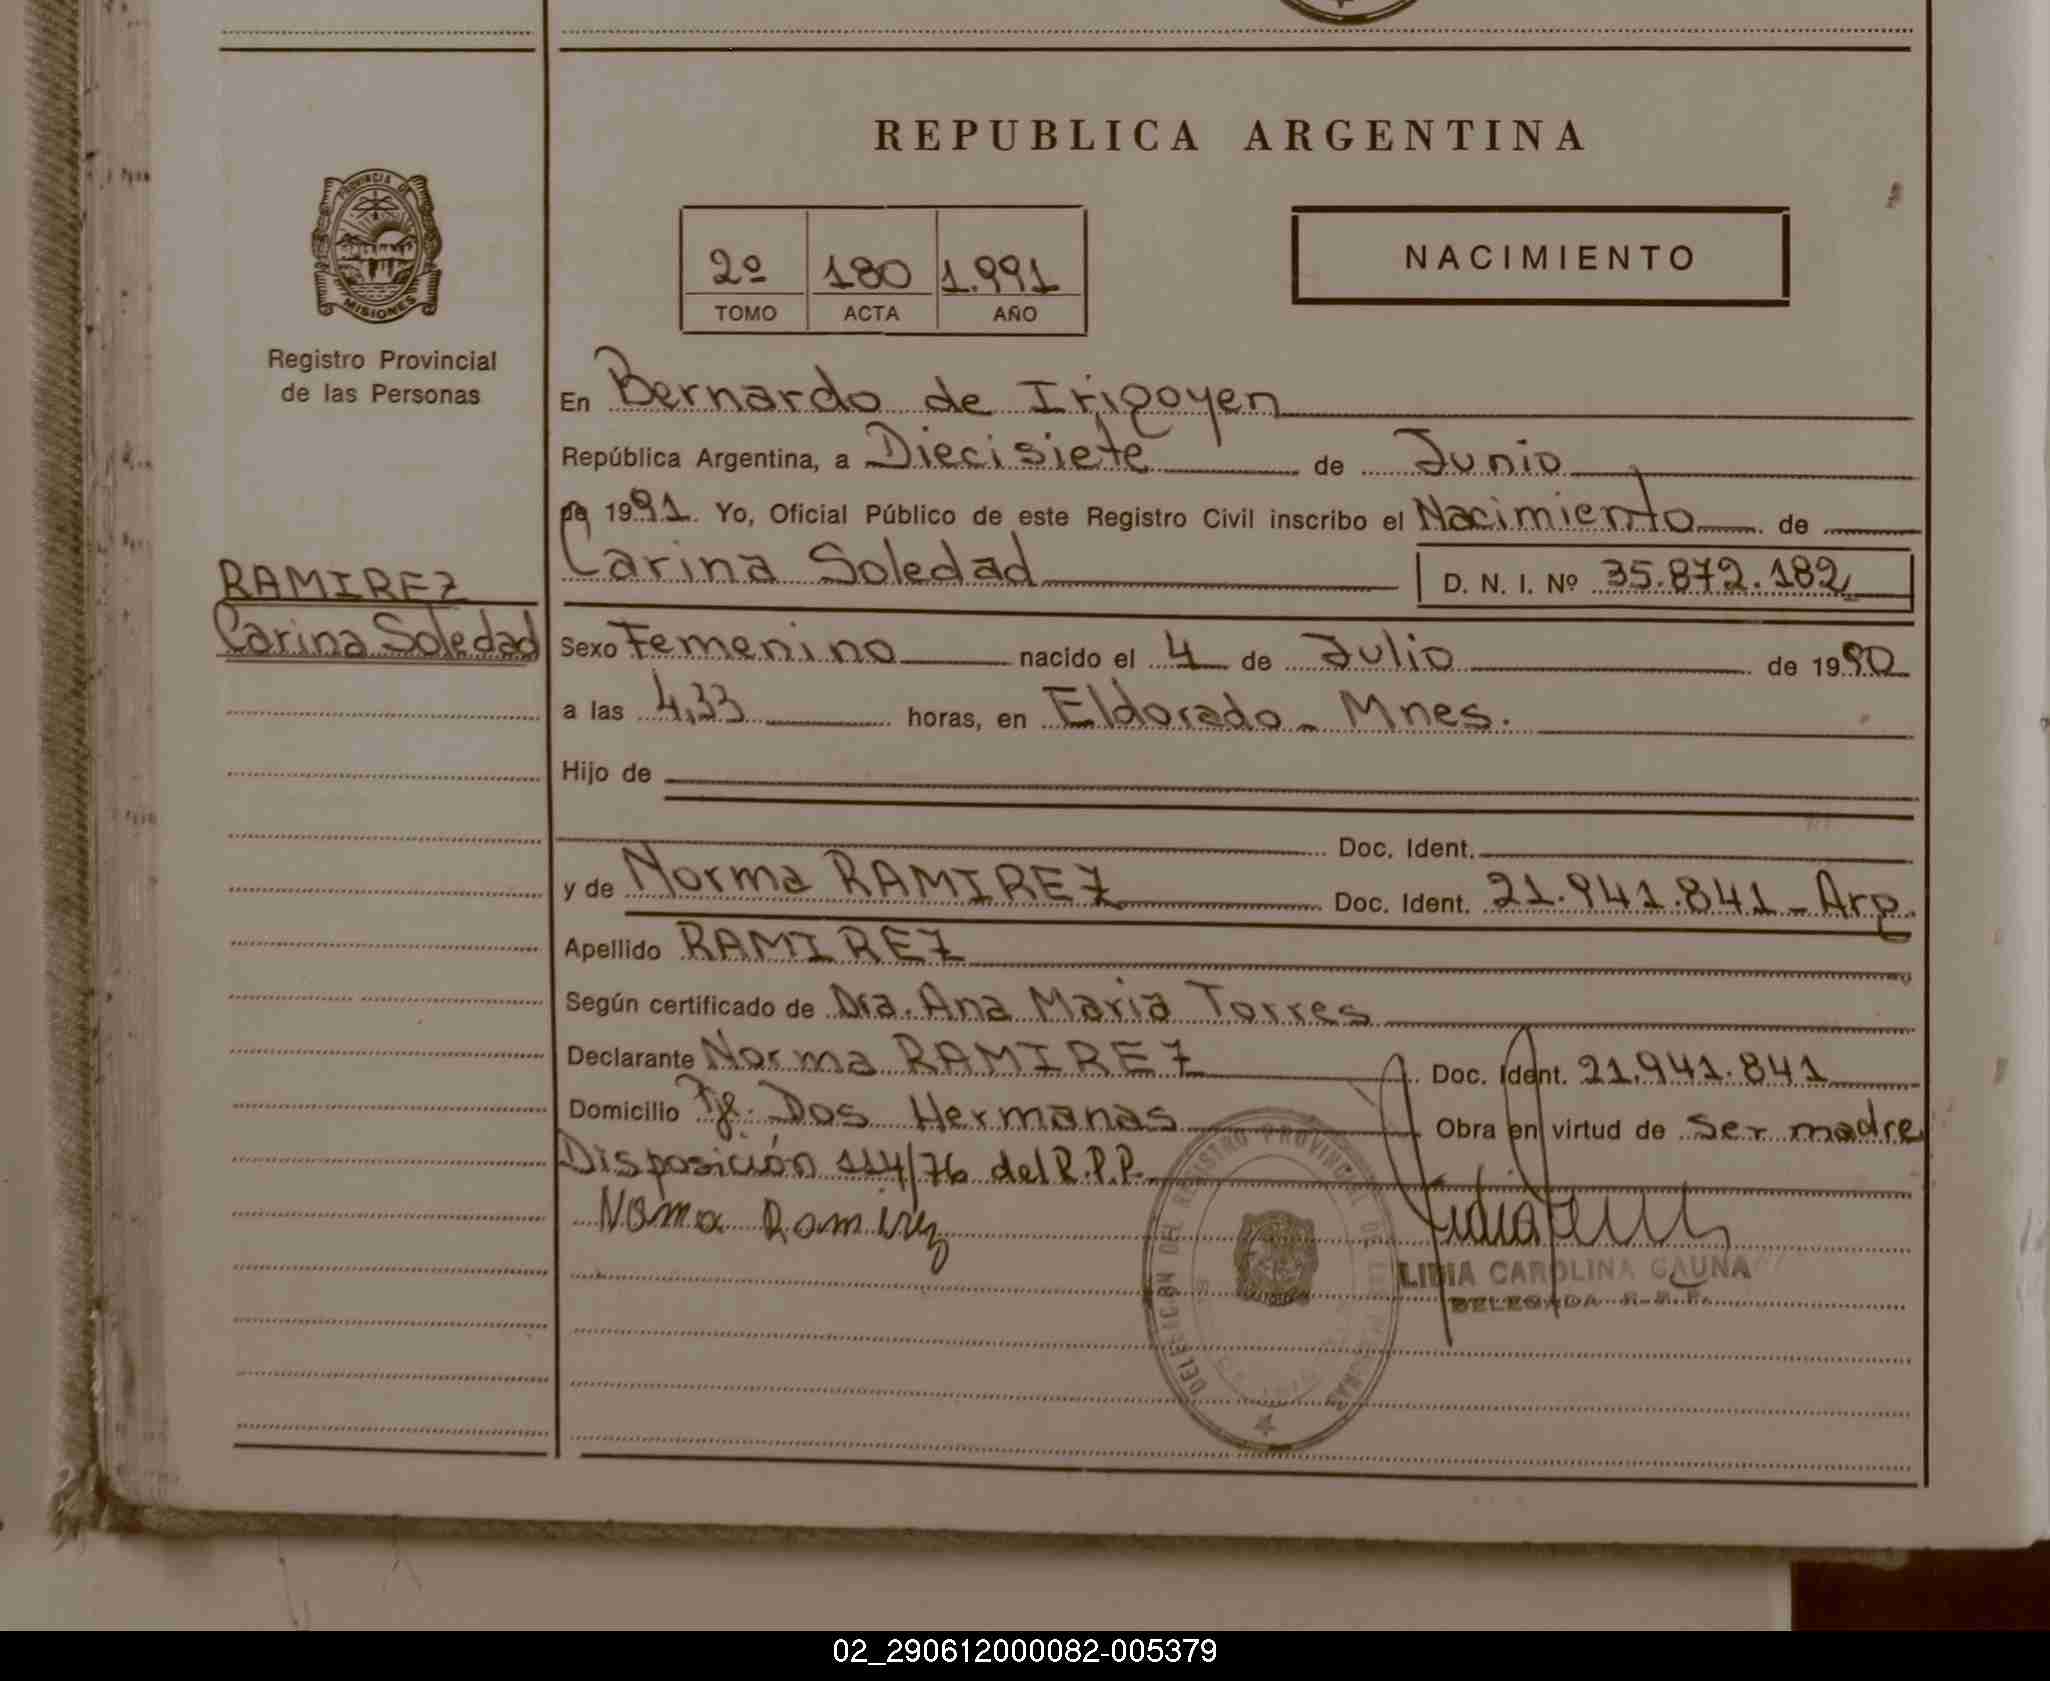 REPUBLICA ARGENTINA
PROVINCIA DE MISIONES
Registro Provincial
de las Personas
2º 180 1.991
TOMO ACTA AÑO
NACIMIENTO
En Bernardo de Irigoyen
República Argentina, a Diecisiete de Junio
de 1991. Yo, Oficial Público de este Registro Civil inscribo el Nacimiento de
Carina Soledad D. N. I. Nº 35.872.182
RAMIREZ
Carina Soledad
Sexo Femenino nacido el 4 de Julio de 1990
a las 4,33 horas, en Eldorado - Mnes.
Hijo de
Doc. Ident.
y de Norma RAMIREZ Doc. Ident. 21.941.841 - Arg.
Apellido RAMIREZ
Según certificado de Dra. Ana Maria Torres
Declarante Norma RAMIREZ Doc. Ident. 21.941.841
Domicilio Pje. Dos Hermanas Obra en virtud de ser madre
Disposición 114/76 del R.P.P.
Norma Ramirez
LIDIA CAROLINA GAUNA
DELEGADA R.P.P.
DELEGACION DEL REGISTRO PROVINCIAL DE LAS PERSONAS
02_290612000082-005379